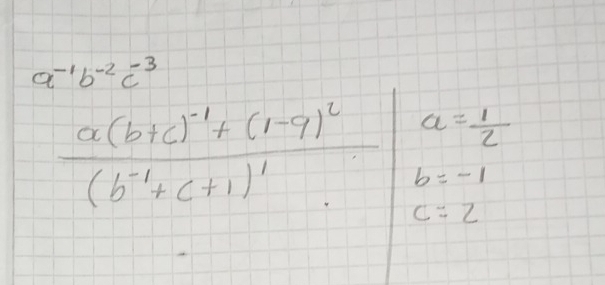 a⁻¹b⁻²c⁻³
a(b+c)⁻¹+(1-9)²
(b⁻¹+c+1)¹
a=1/2
b=-1
c=2